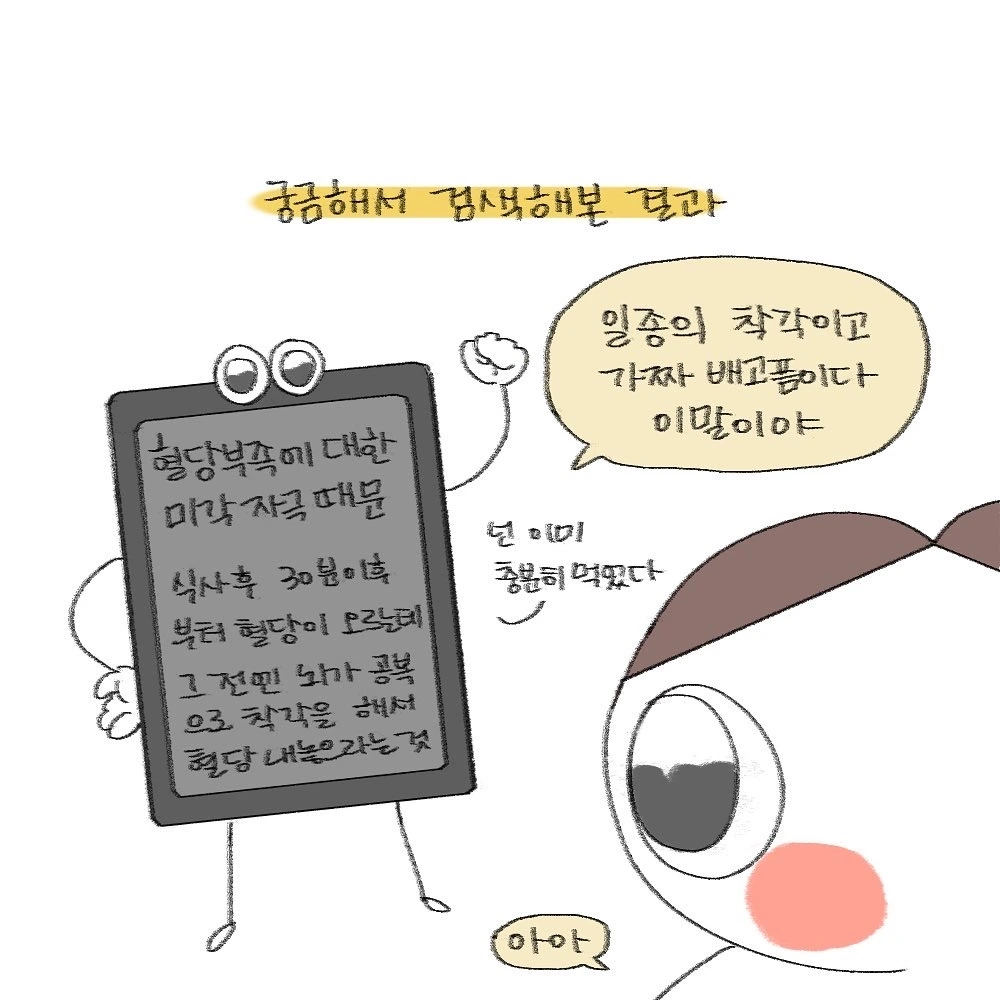 궁금해서 검색해본 결과
일종의 착각이고
가짜 배고픔이다
이말이야
혈당부족에 대한
미각 자극 때문
식사후 30분이후
부터 혈당이 오르는데
그 전엔 뇌가 공복
으로 착각을 해서
혈당 내놓으라는것
넌 이미
충분히 먹었다
아아